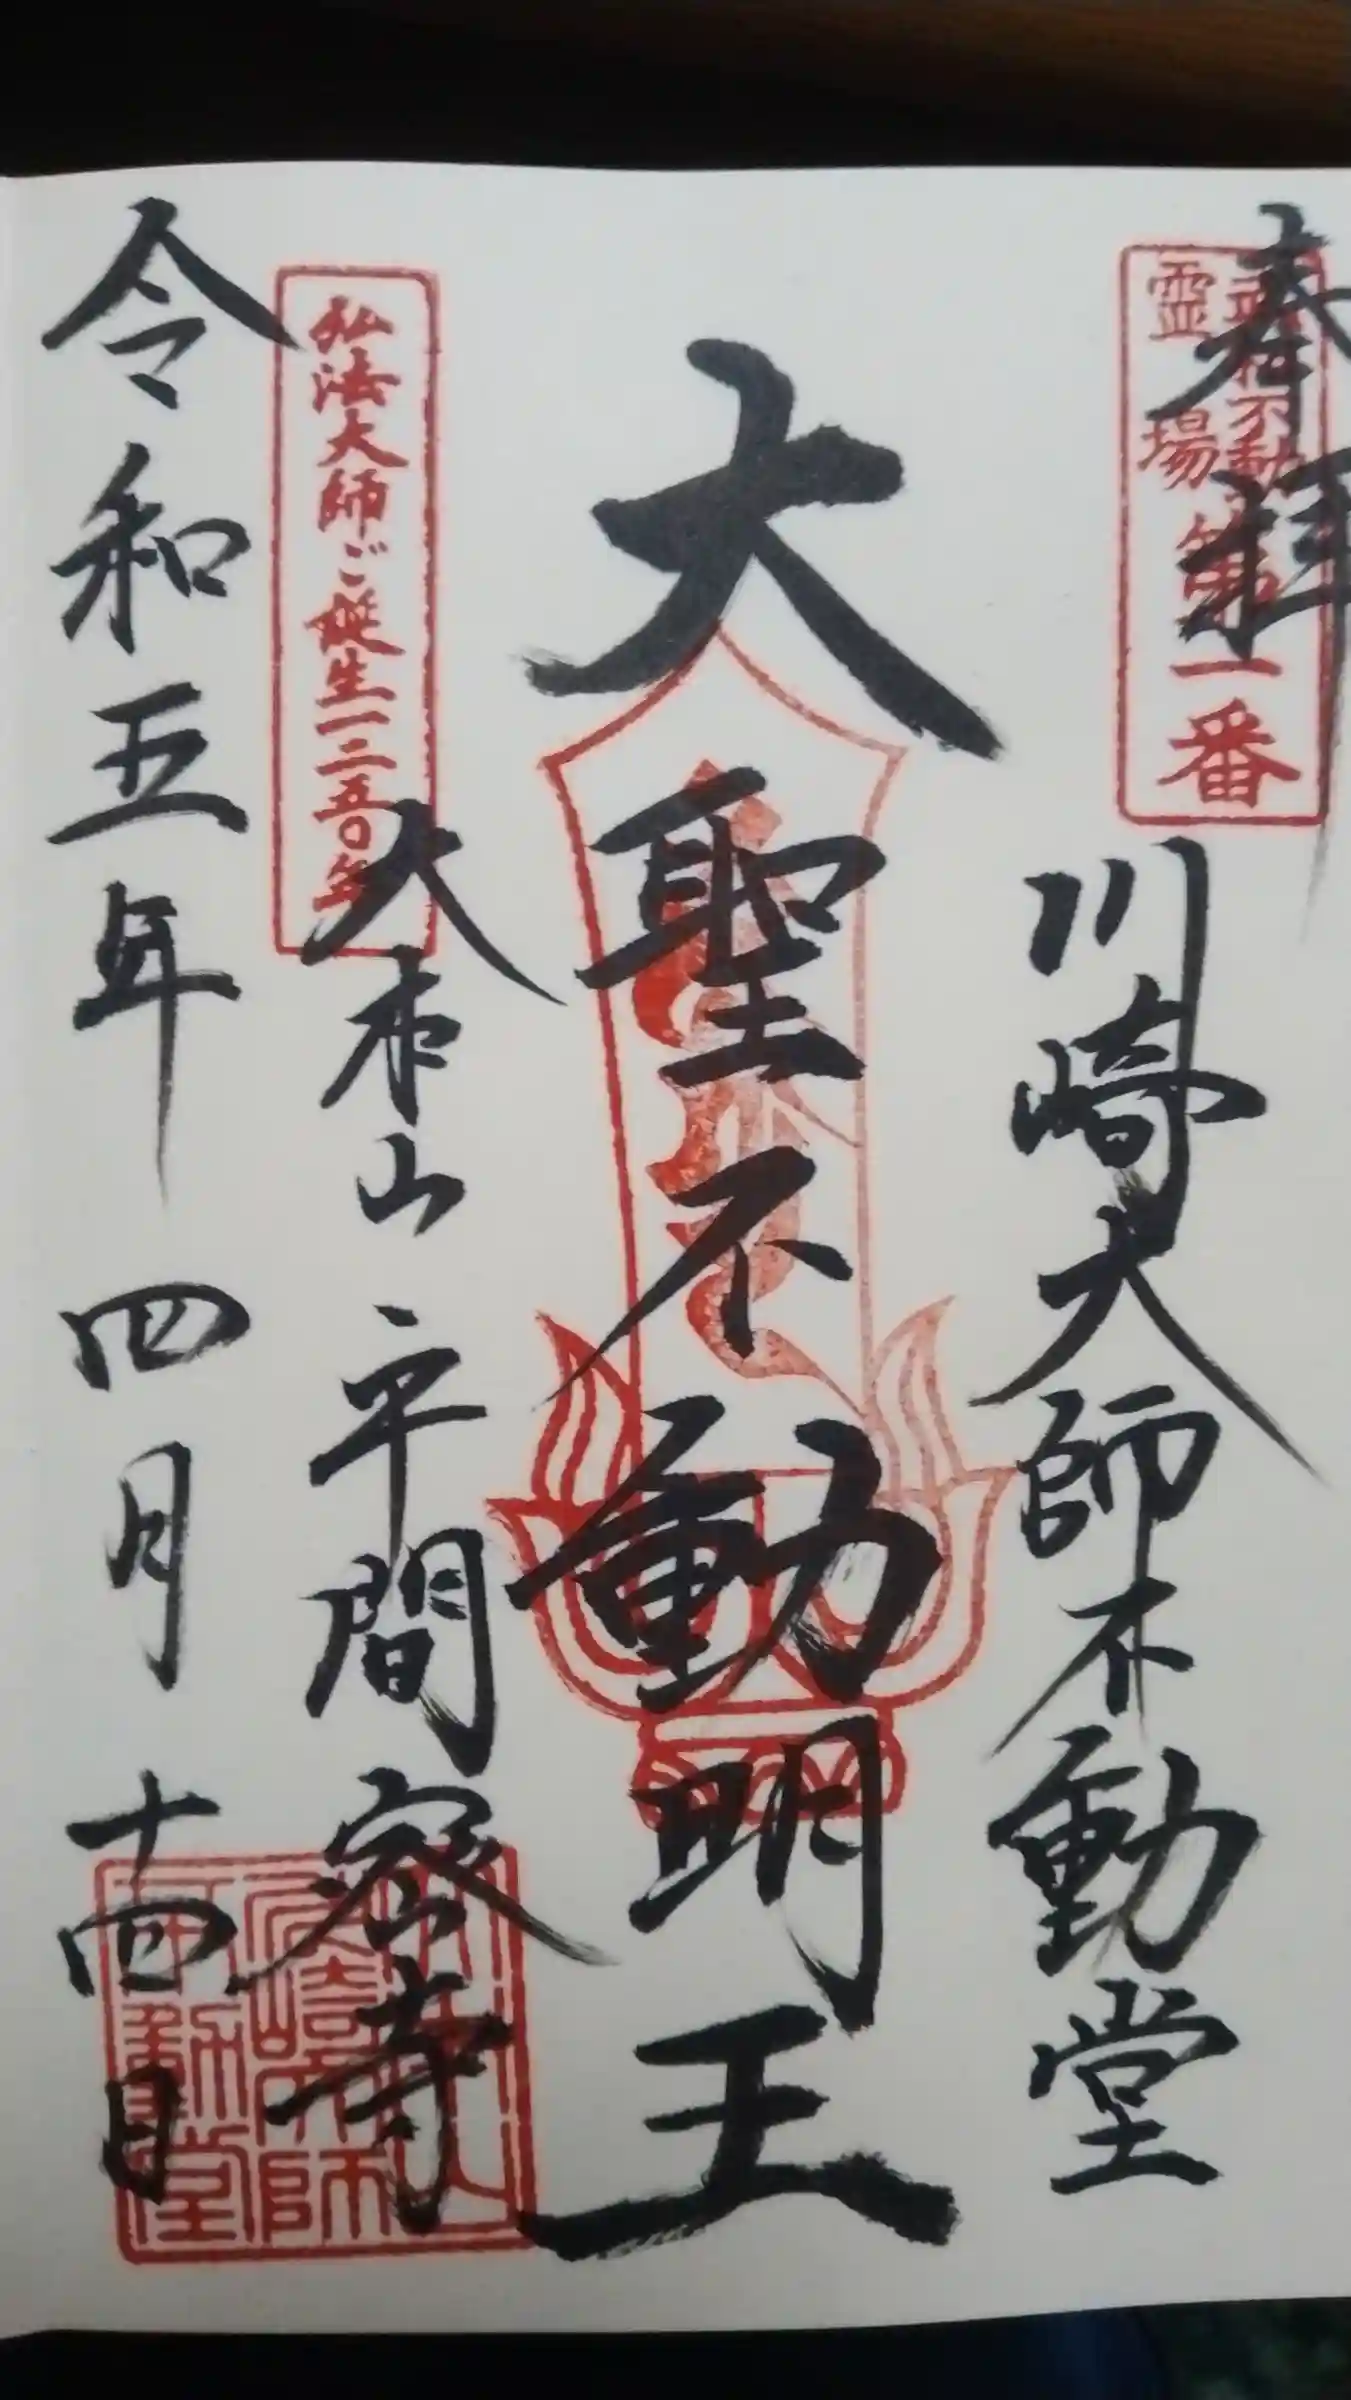 奉拝
霊場
第一番
川崎大師不動堂
大聖不動明王
弘法大師ご誕生一二五〇年
大本山 平間密寺
令和五年 四月 十四日